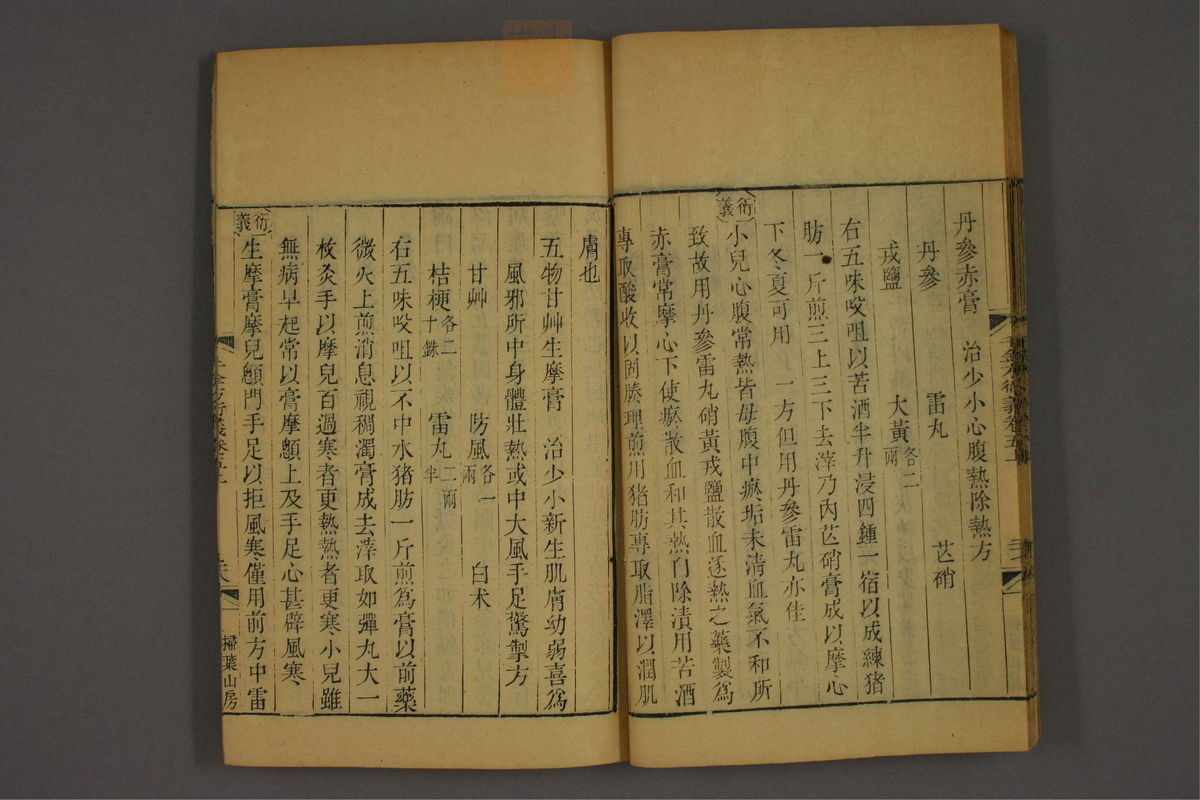 丹參赤膏　治少小心腹熱除熱方
丹參　雷丸　芒硝
戎鹽　大黃各二兩
右五味㕮咀以苦酒半升浸四種一宿以成練猪
肪一斤煎三上三下去滓乃內芒硝膏成以摩心
下冬夏可用　一方但用丹參雷丸亦佳
衍義
小兒心腹常熱皆母腹中瘀垢未淸血氣不和所
致故用丹參雷丸硝黃戎鹽散血逐熱之藥製爲
赤膏常摩心下使瘀散血和其熱自除漬用苦酒
專取酸收以固腠理煎用猪肪專取脂澤以潤肌
膚也
五物甘艸生摩膏　治少小新生肌膚幼弱喜爲
風邪所中身體壯熱或中大風手足驚掣方
甘艸　防風各一兩　白术
桔梗各二十銖　雷丸二兩半
右五味㕮咀以不中水猪肪一斤煎爲膏以前藥
微火上煎消息視稠濁膏成去滓取如彈丸大一
枚灸手以摩兒百過寒者更熱熱者更寒小兒雖
無病早起常以膏摩顖上及手足心甚辟風寒
衍義
生摩膏摩兒顖門手足以拒風寒僅用前方中雷
千金方衍義卷五上
掃葉山房